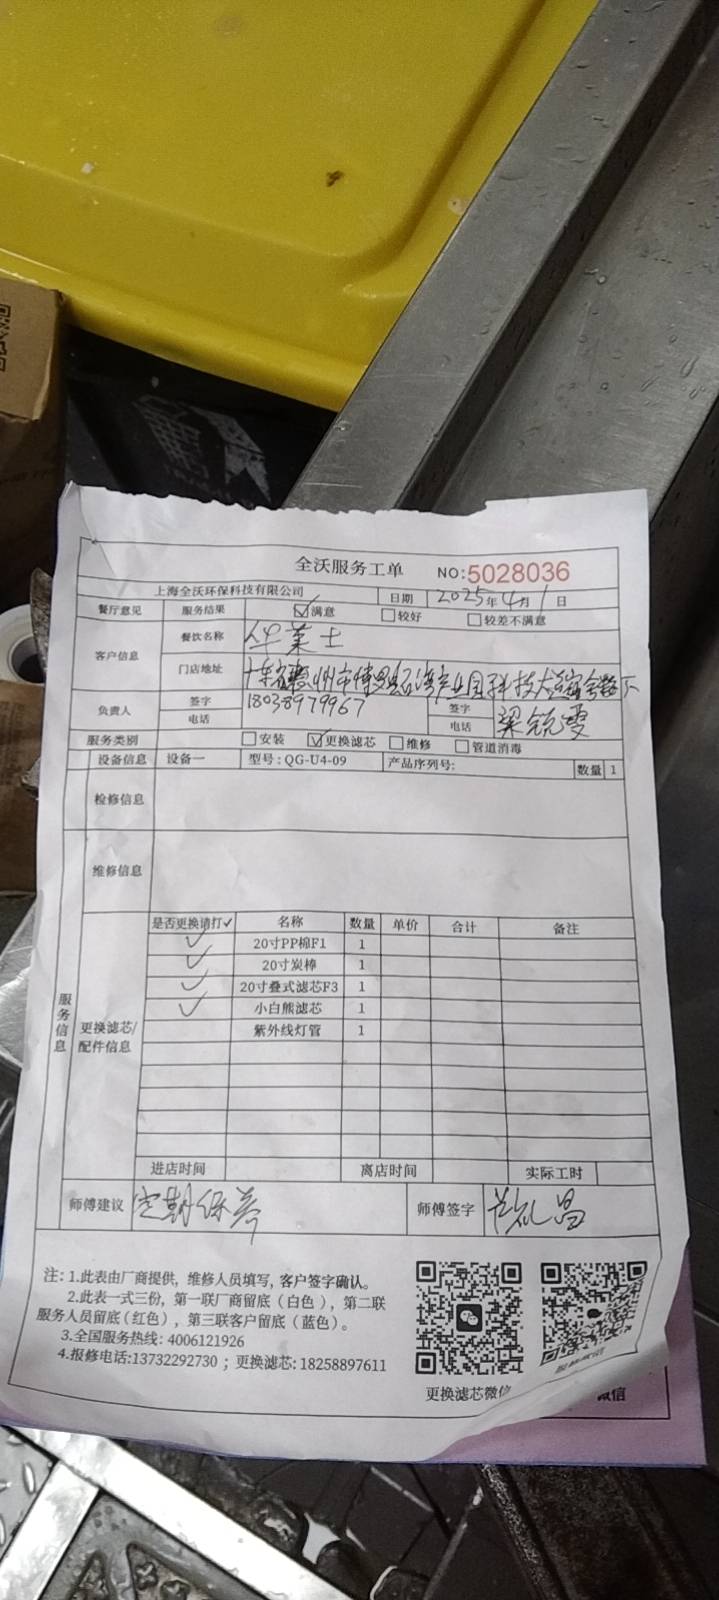 全沃服务工单 NO:5028036
上海全沃环保科技有限公司 日期 2025年4月1日
餐厅意见 服务结果 ☑满意 □较好 □较差不满意
客户信息 餐饮名称 华莱士
门店地址 广东省惠州市博罗县石湾产业园科技大道宿舍楼下
负责人 签字 18038979967 签字
电话 电话 梁锐雯
服务类别 □安装 ☑更换滤芯 □维修 □管道消毒
设备信息 设备一 型号:QG-U4-09 产品序列号: 数量 1
检修信息
维修信息
服务信息
更换滤芯/配件信息
是否更换请打✓ 名称 数量 单价 合计 备注
✓ 20寸PP棉F1 1
✓ 20寸炭棒 1
✓ 20寸叠式滤芯F3 1
✓ 小白熊滤芯 1
紫外线灯管 1
进店时间 离店时间 实际工时
师傅建议 定期保养 师傅签字
注: 1.此表由厂商提供, 维修人员填写, 客户签字确认。
2.此表一式三份, 第一联厂商留底(白色), 第二联
服务人员留底(红色), 第三联客户留底(蓝色)。
3.全国服务热线: 4006121926
4.报修电话:13732292730 ; 更换滤芯: 18258897611
更换滤芯微信
微信